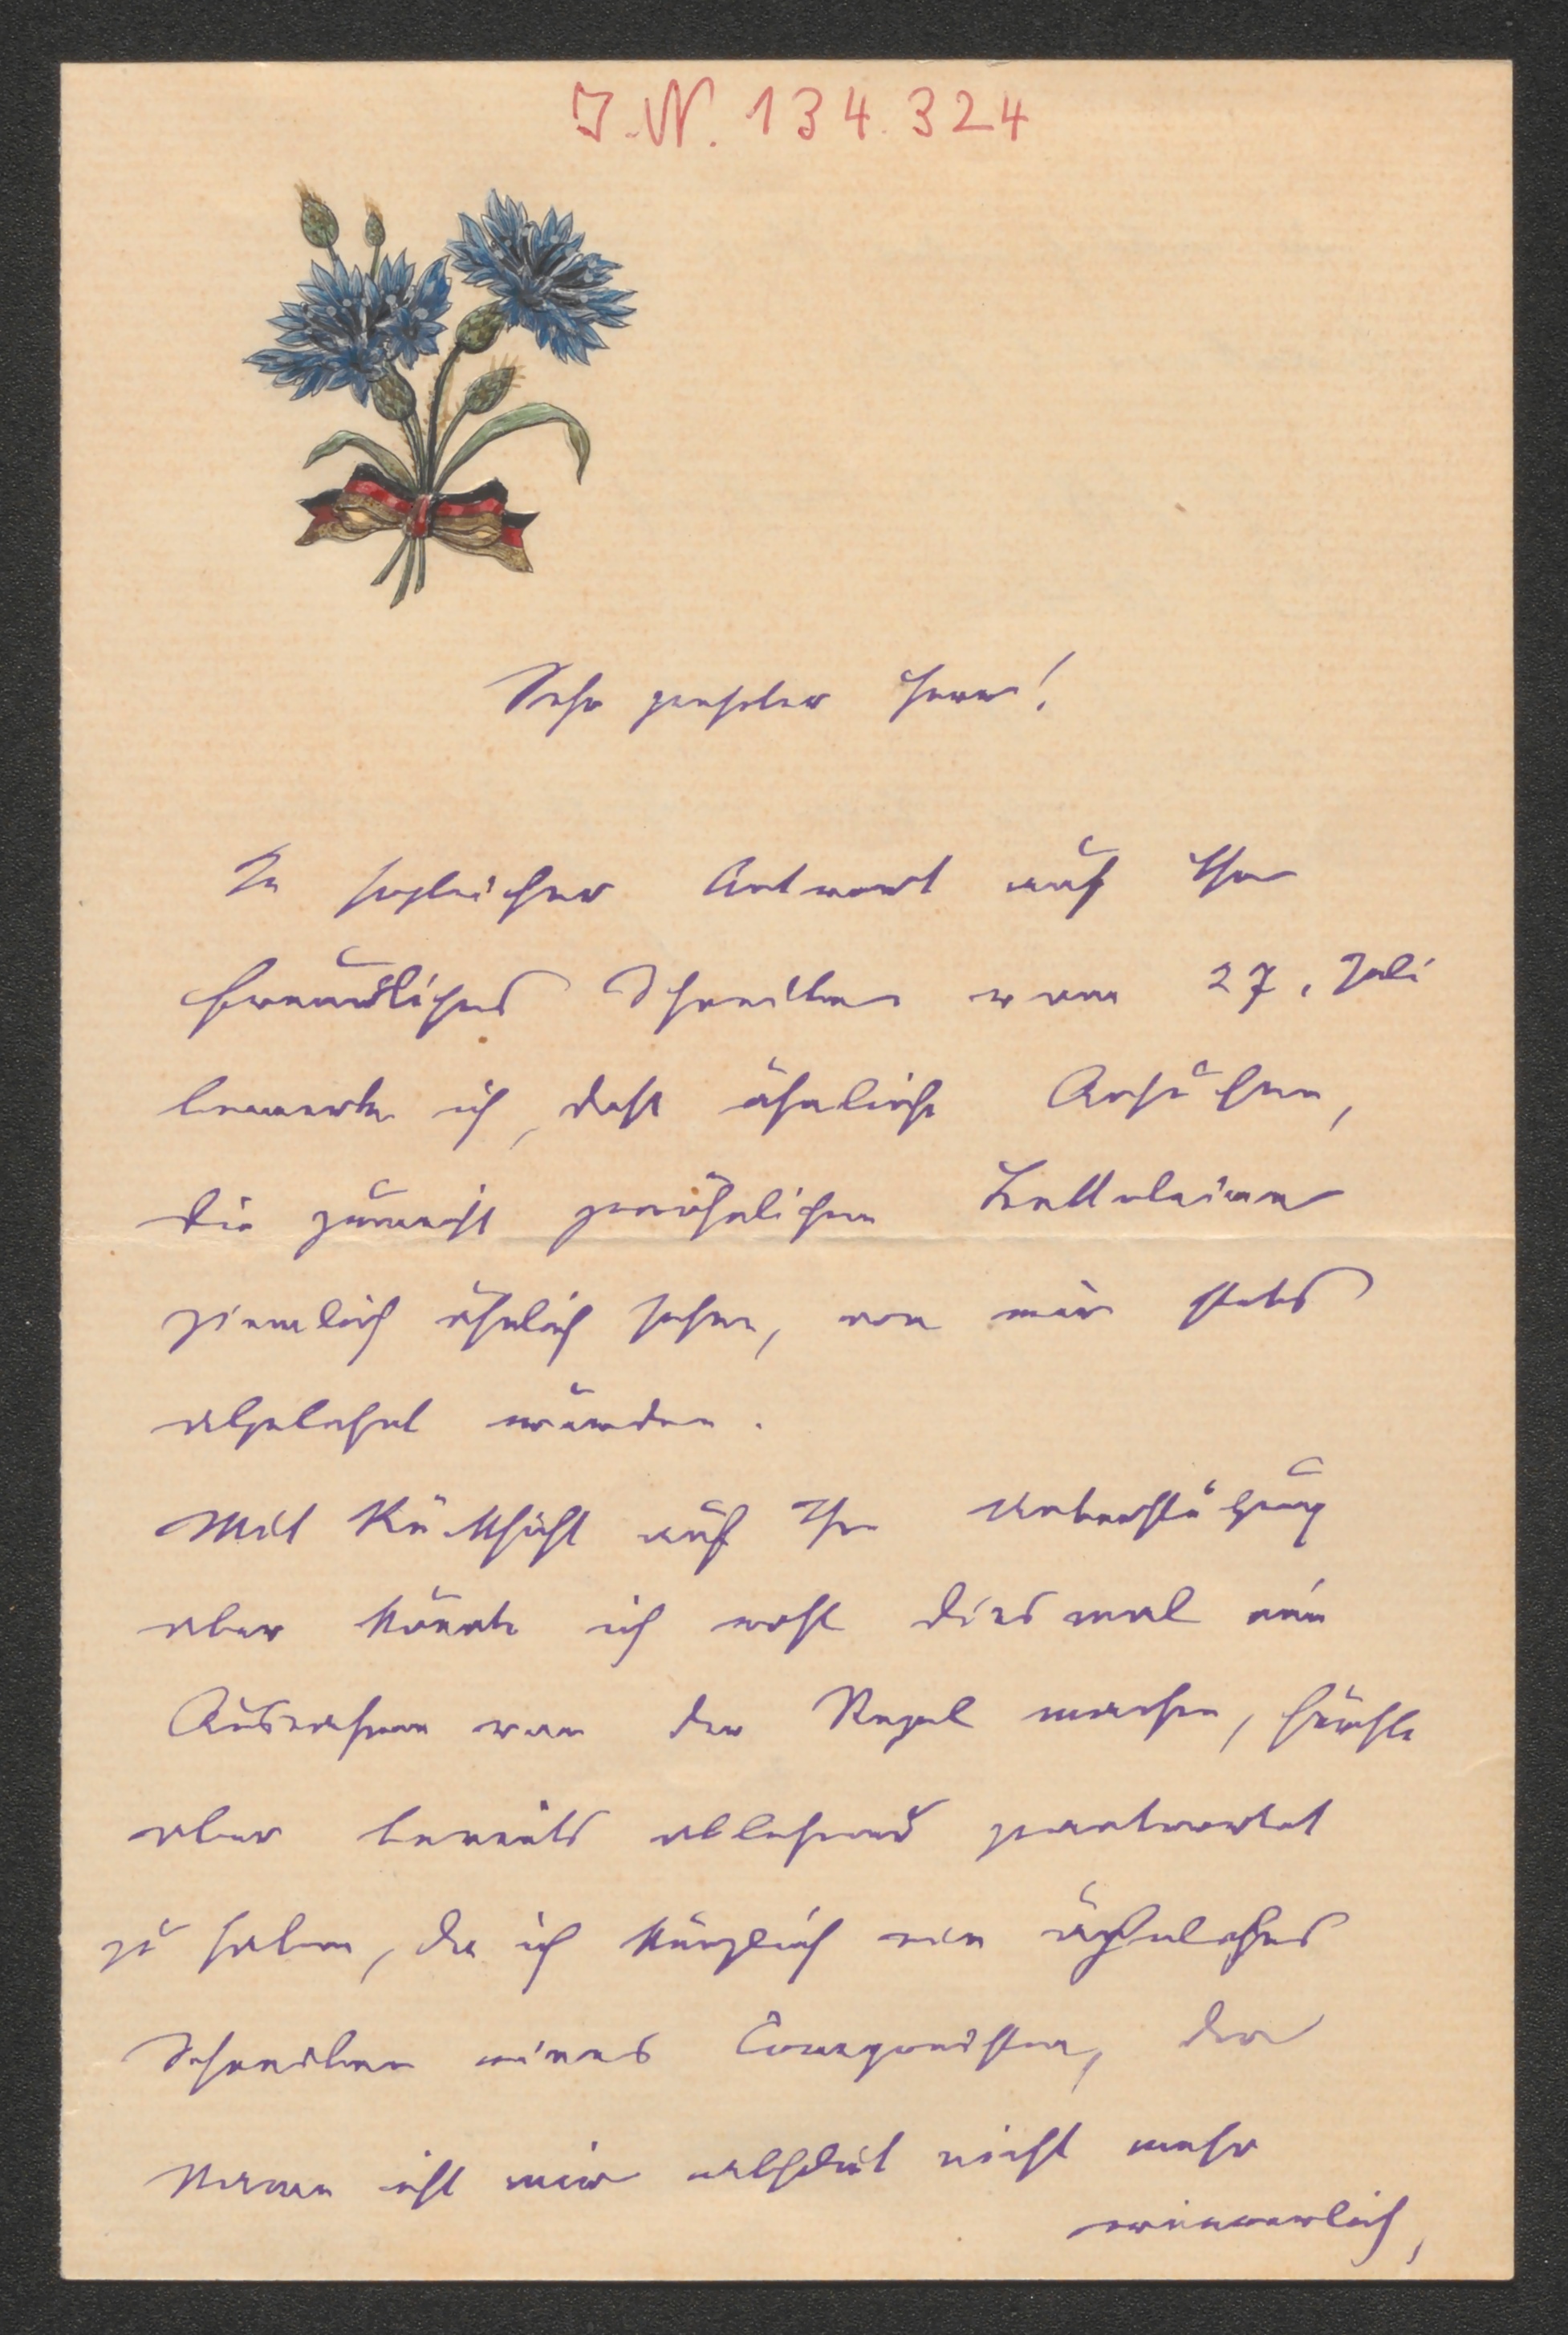 I. N. 134.324
Sehr geehrter Herr!
In sogleicher Antwort auf Ihr
freundliches Schreiben vom 27. Juli
bemerke ich, daß ähnliche Ansuchen,
die zumeist gewöhnlichen Betteleien
ziemlich ähnlich sehen, von mir stets
abgelehnt würden.
Mit Rücksicht auf Ihre Unterstützung
aber könnte ich wohl diesmal eine
Ausnahme von der Regel machen, fürchte
aber bereits ablehnend geantwortet
zu haben, da ich kürzlich ein ähnliches
Schreiben eines Componisten, der
Name ist mir absolut nicht mehr
erinnerlich,